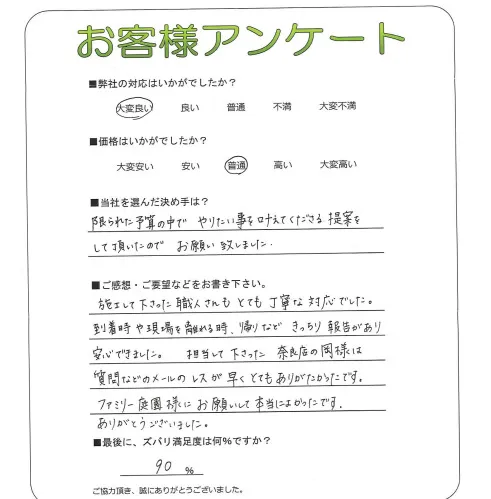 お客様アンケート
■弊社の対応はいかがでしたか?
大変良い 良い 普通 不満 大変不満
■価格はいかがでしたか?
大変安い 安い 普通 高い 大変高い
■当社を選んだ決め手は?
限られた予算の中で やりたい事を叶えてくださる 提案を
して頂いたので お願い致しました.
■ご感想・ご要望などをお書き下さい。
施工して下さった職人さんも とても 丁寧な 対応でした。
到着時や現場を離れる時、帰りなど きっちり 報告があり
安心できました。 担当して下さった 奈良店の岡様は
質問などのメールの レスが 早く とてもありがたかったです。
ファミリー庭園様に お願いして 本当によかったです.
ありがとうございました。
■最後に、ズバリ満足度は何%ですか?
90 %
ご協力頂き、誠にありがとうございました。